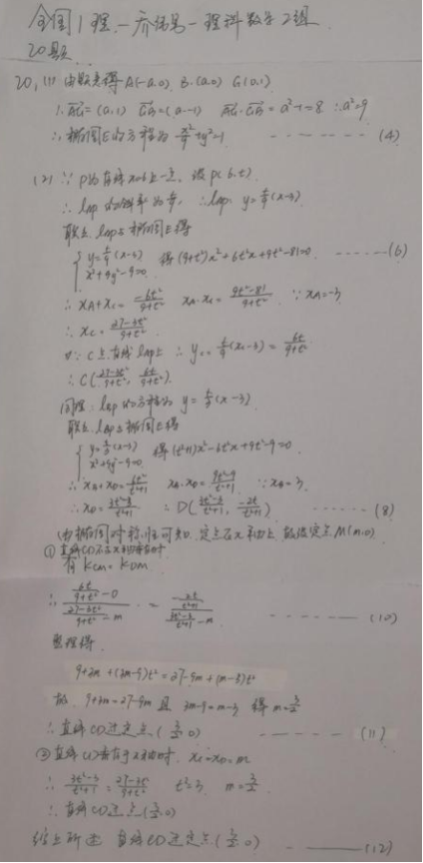 全国1理 - 乔锦昌 - 理科数学2组
20题
20, (1) 由题意得 A(-a,0). B(a,0) G(0,1)
∴ AG=(a,1) GB=(a,-1) AG·GB=a²-1=8 ∴a²=9
∴椭圆E的方程为 x²/9+y²=1 ------ (4)
(2) ∵ P为直线x=6上一点, 设P(6,t)
联立 与椭圆E得
x²+9y²-9=0 得(9+t²)x²+6t²x+9t²-81=0 ------ (6)
∴ xA+xC=-6t²/(9+t²) xA·xC=(9t²-81)/(9+t²) ∵xA=-3
∴ xC=(27-3t²)/(9+t²)
又∵ C在直线 上
∴ C((27-3t²)/(9+t²), 6t/(9+t²))
同理: 的方程为 y=t/3(x-3)
联立 与椭圆E得
x²+9y²-9=0 得(t²+1)x²-6t²x+9t²-9=0
∴ xB+xD=6t²/(t²+1) xB·xD=(9t²-9)/(t²+1) ∵xB=3
∴ xD=(3t²-3)/(t²+1) ∴ D((3t²-3)/(t²+1), -2t/(t²+1)) ------ (8)
由椭圆对称性可知, 定点在x轴上, 故设定点M(m,0)
① 直线CD不与x轴垂直时
有 kCM=kDM
∴ (6t/(9+t²)-0)/((27-3t²)/(9+t²)-m) = (-2t/(t²+1))/((3t²-3)/(t²+1)-m) ------ (10)
整理得
9+3m=27-9m 且 得 m=3/2
∴ 直线CD过定点(3/2,0) ------ (11)
② 直线CD垂直于x轴时, xC=xD=m
∴ (3t²-3)/(t²+1)=(27-3t²)/(9+t²) t²=3 m=3/2
∴ 直线CD过定点(3/2,0)
综上所述 直线CD过定点(3/2,0) ------ (12)